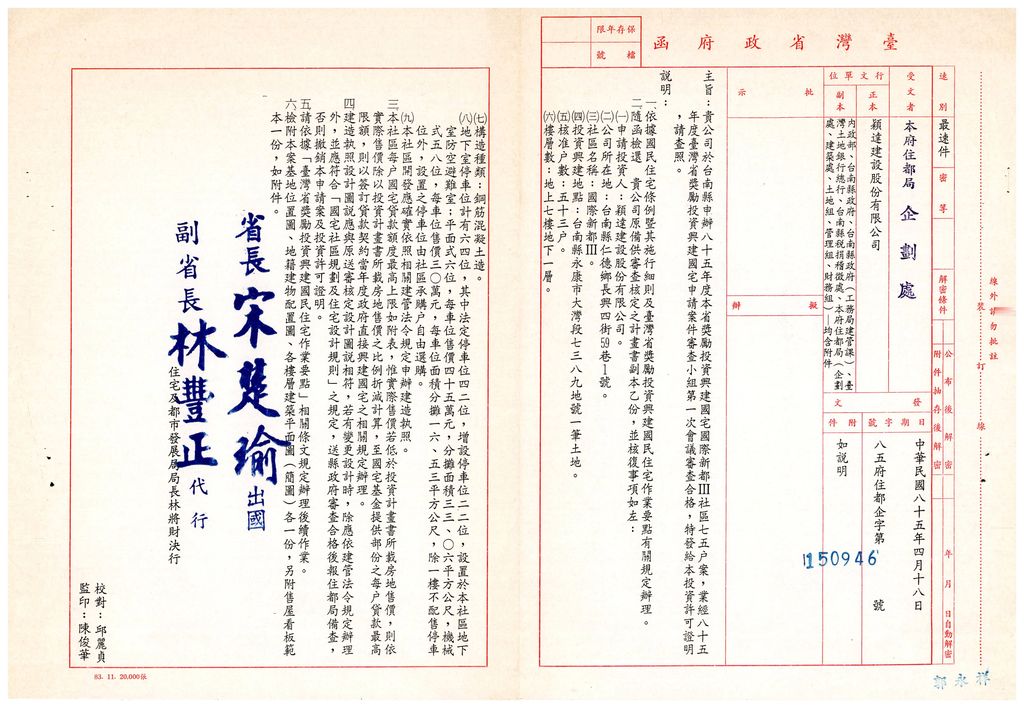 保存年限
檔號
臺灣省政府函
速別
最速件
密等
解密條件
公布後解密
附件抽存後解密
年月日自動解密
受文者
本府住都局 企劃處
行文單位
正本
穎達建設股份有限公司
副本
內政部、台南縣政府、台南縣政府(工務局建管課)、臺
灣土地銀行總行、台南縣稅捐稽徵處、本府住都局(企劃
處、建築處、土地組、管理組、財務組)—均含附件
發文
日期
中華民國八十五年四月十八日
字號
八五府住都企字第 150946 號
附件
如說明
批示
擬辦
主旨:貴公司於台南縣申辦八十五年度本省獎勵投資興建國宅國際新都Ⅲ社區七五戶案,業經八十五
年度臺灣省獎勵投資興建國宅申請案件審查小組第一次會議審查合格,特發給本投資許可證明
,請查照。
說明:
一、依據國民住宅條例暨其施行細則及臺灣省獎勵投資興建國民住宅作業要點有關規定辦理。
二、隨函檢還 貴公司原備供審查核定之計畫書副本乙份,並核復事項如左:
㈠申請投資人:穎達建設股份有限公司。
㈡公司所在地:台南縣仁德鄉長興四街59巷1號。
㈢社區名稱:國際新都Ⅲ。
㈣投資興建地點:台南縣永康市大灣段七三八九地號一筆土地。
㈤核准戶數:五十三戶。
㈥樓層數:地上七樓地下一層。
㈦構造種類:鋼筋混凝土造。
㈧地下室停車位計有六四位,其中法定停車位四二位,增設停車位二二位,設置於本社區地下
室防空避難室;平面式六位,每車位售價四十五萬元,分攤面積三三、○六平方公尺,機械
式五八位,每車位售價三○萬元,每車位面積分攤一六、五三平方公尺,除一樓不配售停車
位外,設置之停車位由社區承購戶自由選購。
㈨本社區開發應確實依照相關建管法令規定申辦建造執照。
三、本社區每戶國宅貸款額度最高上限如附表,惟實際售價若低於投資計畫書所載房地售價,則依
實際售價除以投資計畫書所載房地售價之比例折減計算,至國宅基金提供部份之每戶貸款最高
限額,則以簽訂貸款契約當年度政府直接興建國宅之相關規定辦理。
四、建造執照設計圖說應與原送審核定設計圖說相符,若有變更設計時,除應依建管法令規定辦理
外,並應符合「國宅社區規劃及住宅設計規則」之規定,送縣政府審查合格後報住都局備查,
否則撤銷本申請案及投資許可證明。
五、請依據「臺灣省獎勵投資興建國民住宅作業要點」相關條文規定辦理後續作業。
六、檢附本案基地位置圖、地籍建物配置圖、各樓層建築平面圖(簡圖)各一份,另附售屋看板範
本一份,如附件。
省長 宋楚瑜 出國
副省長 林豐正 代行
住宅及都市發展局局長林將財決行
校對:邱麗貞
監印:陳俊華
83. 11. 20,000張
線外請勿批註
裝訂線
郭永祥